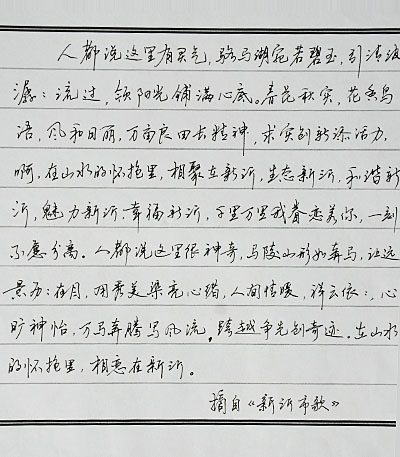 人都说这里有灵气，骆马湖宛若碧玉，引清波
潺：流过，领阳光铺满心底。春花秋实，花香鸟
语，风和日丽，万亩良田长精神，求实创新添活力，
啊，在山水的怀抱里，相聚在新沂，生态新沂，和谐新
沂，魅力新沂，幸福新沂，千里万里我眷恋着你，一刻
不愿分离。人都说这里很神奇，马陵山形如奔马，让远
景历：在目，用秀美染亮心绪，人间情暖，祥云依：，心
旷神怡，万马奔腾写风流，跨越争先创奇迹。在山水
的怀抱里，相恋在新沂。
摘自《新沂市歌》